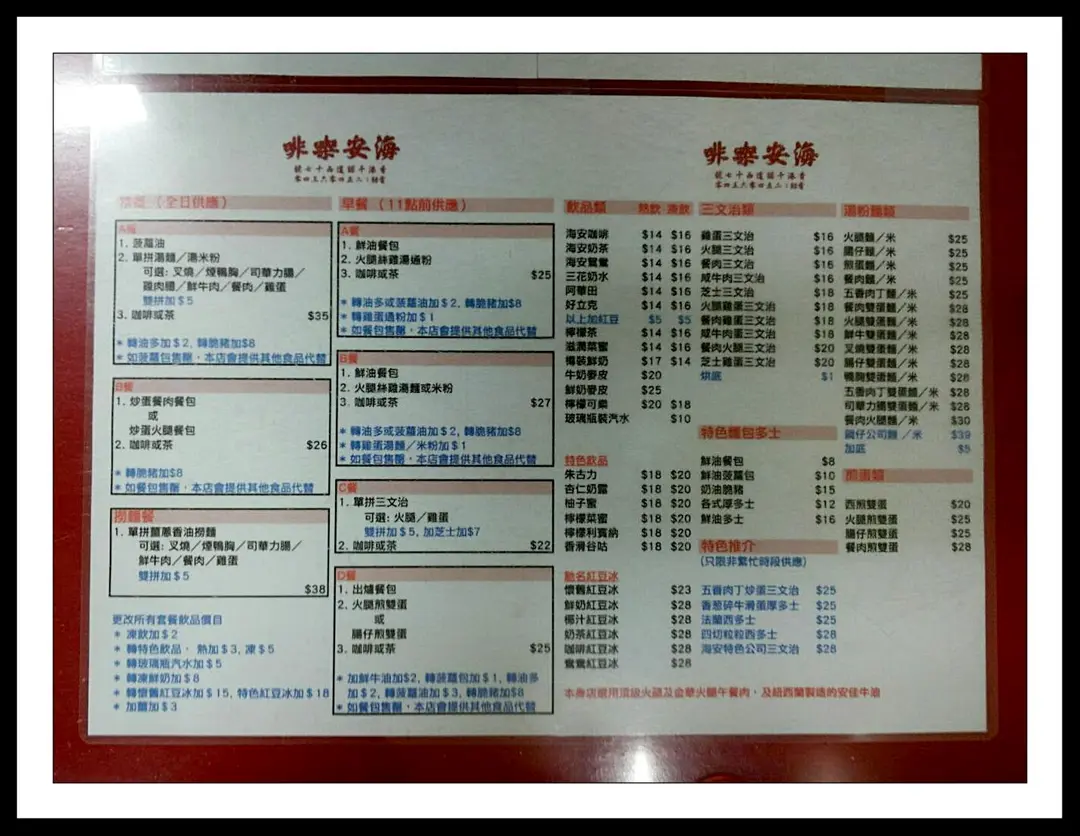 海安咖啡
香港干諾道西十七號
海安咖啡
香港干諾道西十七號
常餐（全日供應）
A餐
1. 菠蘿油
2. 單拼湯麵／湯米粉
可選: 叉燒／煙鴨胸／司華力腸／
雞肉腸／鮮牛肉／餐肉／雞蛋
雙拼加＄5
3. 咖啡或茶 $35
* 轉油多加＄2, 轉脆豬加$8
* 如菠蘿包售罄，本店會提供其他食品代替
B餐
1. 炒蛋餐肉餐包
或
炒蛋火腿餐包
2. 咖啡或茶 $26
* 轉脆豬加$8
* 如餐包售罄，本店會提供其他食品代替
撈麵餐
1. 單拼薑蔥香油撈麵
可選: 叉燒／煙鴨胸／司華力腸／
鮮牛肉／餐肉／雞蛋
雙拼加＄5
$38
更改所有套餐飲品價目
* 凍飲加＄2
* 轉特色飲品， 熱加＄3, 凍＄5
* 轉玻璃瓶汽水加＄5
* 轉凍鮮奶加＄8
* 轉懷舊紅豆冰加＄15, 特色紅豆冰加＄18
* 加薑加＄3
早餐（11點前供應）
A餐
1. 鮮油餐包
2. 火腿絲雞湯通粉
3. 咖啡或茶 $25
* 轉油多或菠蘿油加＄2, 轉脆豬加$8
* 轉雞蛋通粉加＄1
* 如餐包售罄，本店會提供其他食品代替
B餐
1. 鮮油餐包
2. 火腿絲雞湯麵或米粉
3. 咖啡或茶 $27
* 轉油多或菠蘿油加＄2, 轉脆豬加$8
* 轉雞蛋湯麵／米粉加＄1
* 如餐包售罄，本店會提供其他食品代替
C餐
1. 單拼三文治
可選：火腿／雞蛋
雙拼加＄5, 加芝士加$7
2. 咖啡或茶 $22
D餐
1. 出爐餐包
2. 火腿煎雙蛋
或
腸仔煎雙蛋
3. 咖啡或茶 $25
* 加鮮牛油加$2, 轉菠蘿包加＄1, 轉油多
加＄2, 轉菠蘿油加＄3, 轉脆豬加$8
* 如餐包售罄，本店會提供其他食品代替
飲品類 熱飲 凍飲
海安咖啡 $14 $16
海安奶茶 $14 $16
海安鴛鴦 $14 $16
三花奶水 $14 $16
阿華田 $14 $16
好立克 $14 $16
以上加紅豆 $5 $5
檸檬茶 $14 $16
滋潤菜蜜 $14 $16
樽裝鮮奶 $17 $14
牛奶麥皮 $20
鮮奶麥皮 $25
檸檬可樂 $20 $18
玻璃瓶裝汽水 $10
特色飲品
朱古力 $18 $20
杏仁奶露 $18 $20
柚子蜜 $18 $20
檸檬菜蜜 $18 $20
檸檬利賓納 $18 $20
香滑谷咕 $18 $20
馳名紅豆冰
懷舊紅豆冰 $23
鮮奶紅豆冰 $28
椰汁紅豆冰 $28
奶茶紅豆冰 $28
咖啡紅豆冰 $28
鴛鴦紅豆冰 $28
三文治類
雞蛋三文治 $16
火腿三文治 $16
餐肉三文治 $16
咸牛肉三文治 $16
芝士三文治 $18
火腿雞蛋三文治 $18
餐肉雞蛋三文治 $18
咸牛肉蛋三文治 $18
餐肉火腿三文治 $20
芝士雞蛋三文治 $20
烘底 $1
特色麵包多士
鮮油餐包 $8
鮮油菠蘿包 $10
奶油脆豬 $15
各式厚多士 $12
鮮油多士 $16
特色推介
(只限非繁忙時段供應)
五香肉丁炒蛋三文治 $25
香蔥碎牛滑蛋厚多士 $25
法蘭西多士 $25
四切粒粒西多士 $28
海安特色公司三文治 $28
湯粉麵類
火腿麵／米 $25
腸仔麵／米 $25
煎蛋麵／米 $25
餐肉麵／米 $25
五香肉丁麵／米 $25
餐肉雙蛋麵／米 $28
火腿雙蛋麵／米 $28
鮮牛雙蛋麵／米 $28
叉燒雙蛋麵／米 $28
腸仔雙蛋麵／米 $28
鴨胸雙蛋麵／米 $28
五香肉丁雙蛋麵／米 $28
司華力腸雙蛋麵／米 $28
餐肉火腿麵／米 $30
鍋仔公司麵 ／米 $39
加底 $5
煎蛋類
西煎雙蛋 $20
火腿煎雙蛋 $25
腸仔煎雙蛋 $25
餐肉煎雙蛋 $28
本券店選用頂級火腿及金華火腿午餐肉，及紐西蘭製造的安佳牛油